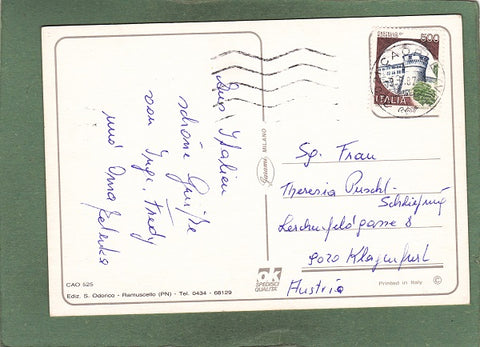 Aus Italien
schöne Grüße
von Inge, Fredy
und Oma
500
ITALIA
Garami MILANO
Sg. Frau
Theresia Puschl-
Schliefnig
Lerchenfeldgasse 8
9020 Klagenfurt
Austria
CAO 525
Ediz. S. Odorico - Ramuscello (PN) - Tel. 0434 - 69129
ok
SPEDISCI
QUALITÀ
Printed in Italy ©